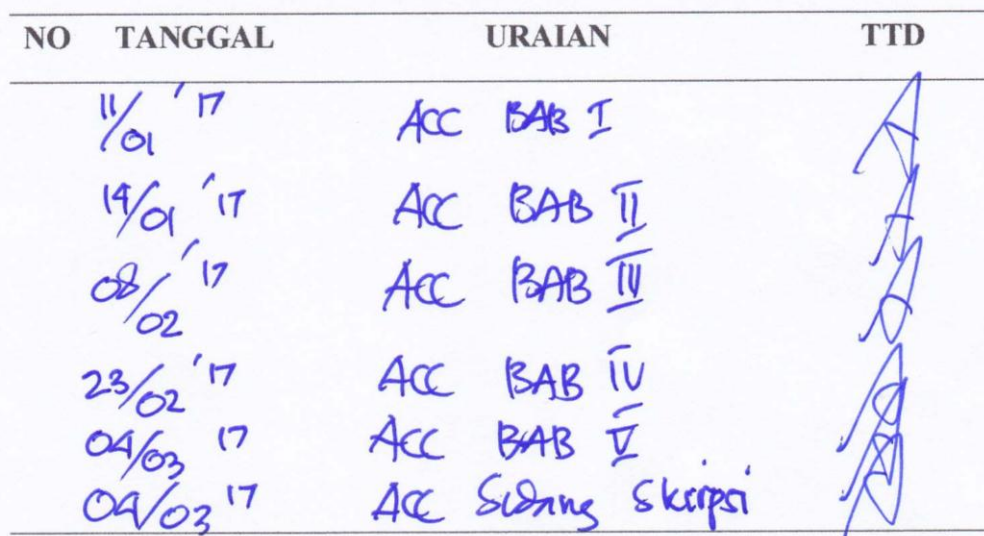 NO TANGGAL URAIAN TTD
11/01 '17 ACC BAB I
14/01 '17 ACC BAB II
08/02 '17 ACC BAB III
23/02 '17 ACC BAB IV
04/03 '17 ACC BAB V
04/03 '17 ACC Sidang Skripsi